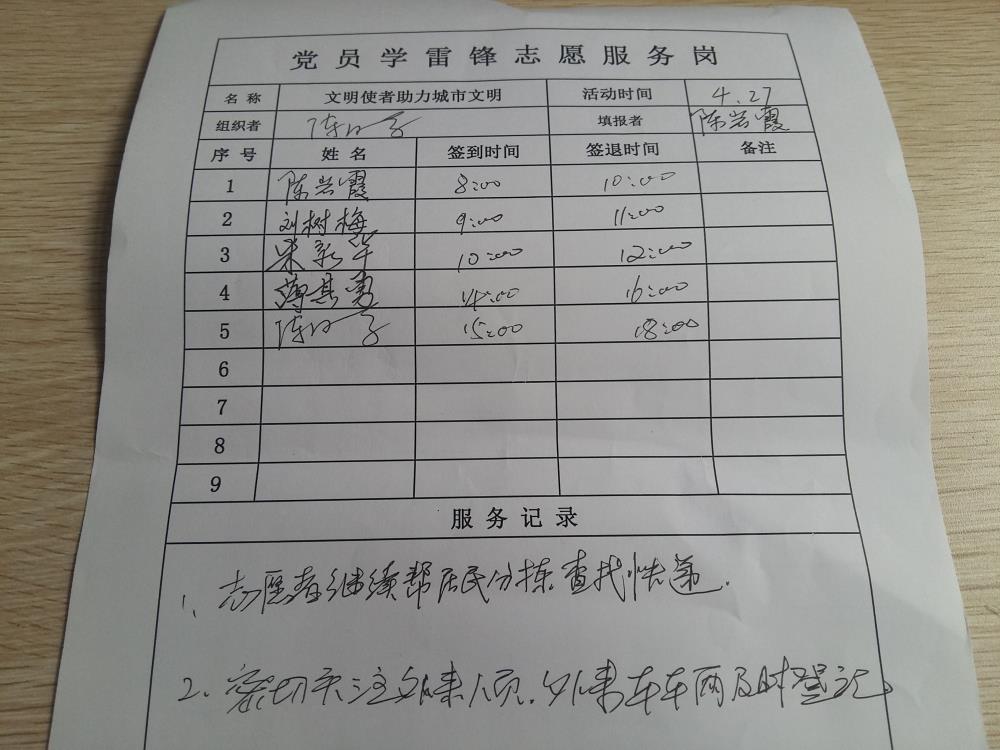 党员学雷锋志愿服务岗
名称 文明使者助力城市文明 活动时间 4.27
组织者 填报者 陈岩霞
序号 姓名 签到时间 签退时间 备注
1 陈岩霞 8:00 10:00
2 刘树梅 9:00 11:00
3 新华 10:00 12:00
4 薄其勇 14:00 16:00
5 15:00 18:00
6
7
8
9
服务记录
1、志愿者继续帮居民分拣查找快递.
2、密切关注外来人员.外来车车两及时登记